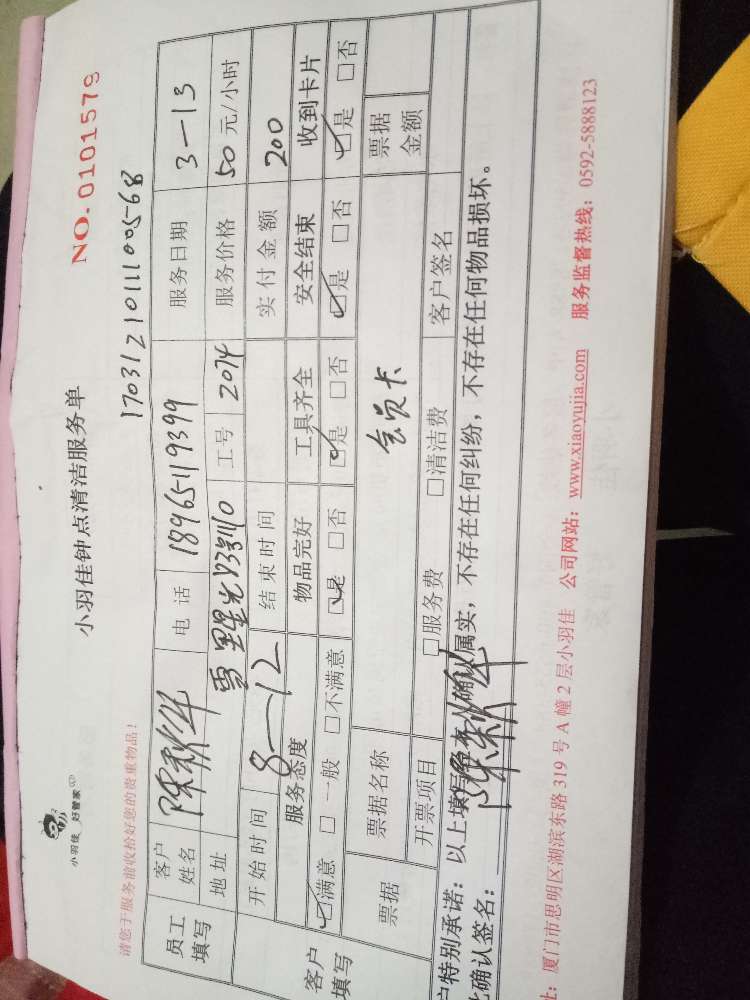 小羽佳 好管家
小羽佳钟点清洁服务单
NO.0101579
请您于服务前收拾好您的贵重物品!
17031210111005-68
员工填写
客户姓名 电话 18965119399 服务日期 3—13
地址 工号 2074 服务价格 50元/小时
开始时间 8—12 结束时间 实付金额 200
客户填写
服务态度 物品完好 工具齐全 安全结束 收到卡片
☑满意 □一般 □不满意 ☑是 □否 ☑是 □否 ☑是 □否 ☑是 □否
票据 票据名称 会员卡 票据金额
开票项目 □服务费 □清洁费 客户签名
户特别承诺:以上填写 确认属实,不存在任何纠纷,不存在任何物品损坏。
此确认签名:
址:厦门市思明区湖滨东路319号A幢2层小羽佳 公司网站:www.xiaoyujia.com 服务监督热线:0592-5888123